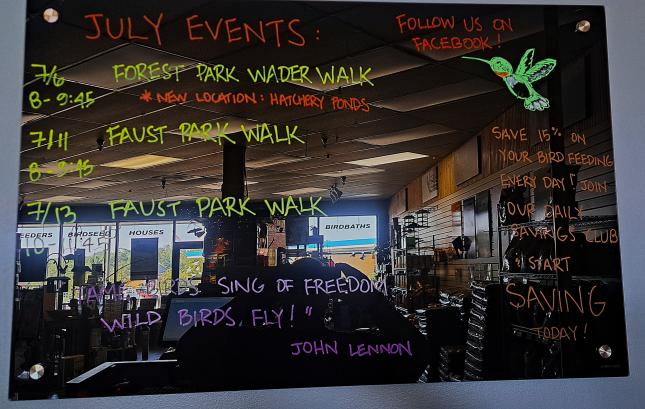 JULY EVENTS:
7/6 FOREST PARK WADER WALK
8-9:45 * NEW LOCATION: HATCHERY PONDS
7/11 FAUST PARK WALK
8-9:45
7/13 FAUST PARK WALK
10-11:45
"TAME BIRDS SING OF FREEDOM
WILD BIRDS FLY!"
JOHN LENNON
FOLLOW US ON
FACEBOOK!
SAVE 15% ON
YOUR BIRD FEEDING
EVERY DAY! JOIN
OUR DAILY
SAVINGS CLUB
START
SAVING
TODAY!
BIRDSEED
HOUSES
BIRDBATHS